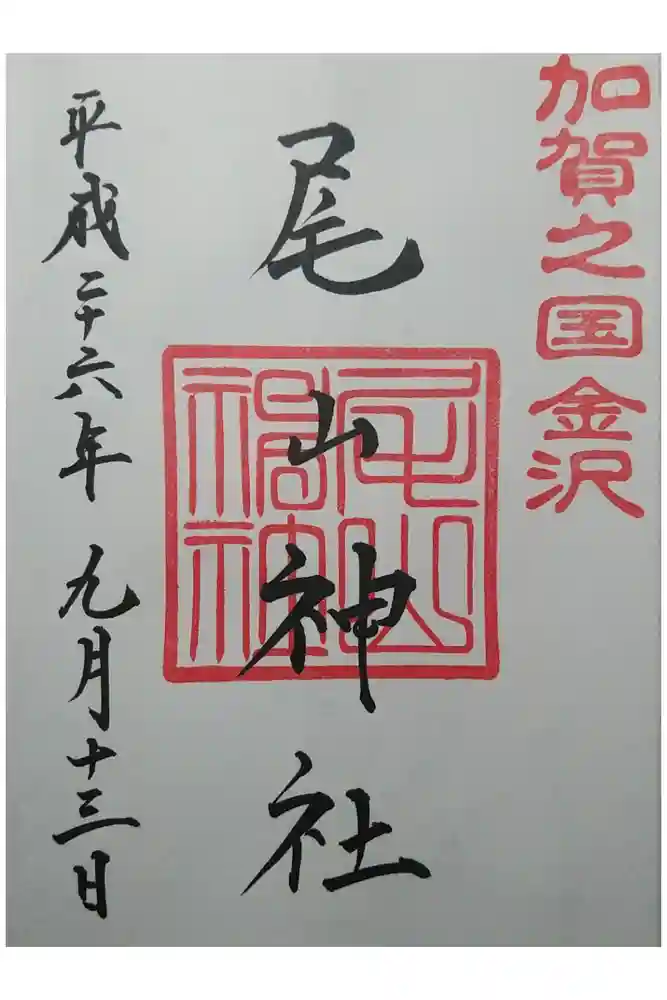 加賀之国金沢
尾山神社
尾山神社
平成二十六年 九月十三日